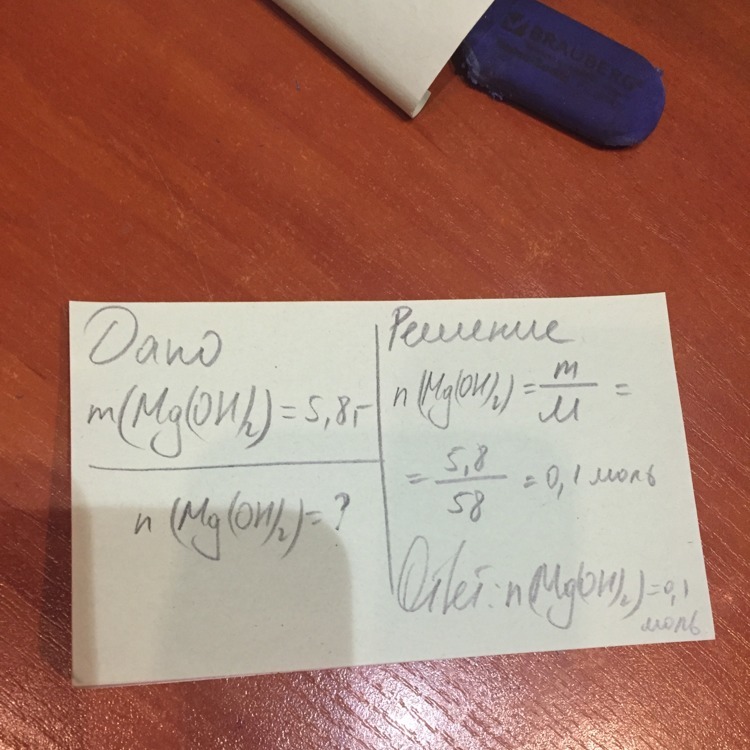 BRAUBERG
Дано
m(Mg(OH)₂) = 5,8г
n (Mg(OH)₂) = ?
Решение
n (Mg(OH)₂) = m/M =
= 5,8/58 = 0,1 моль
Ответ: n(Mg(OH)₂) = 0,1
моль